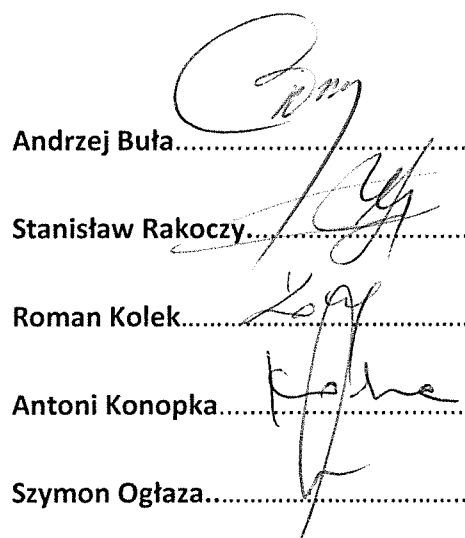 Andrzej Buła..............................
Stanisław Rakoczy......................
Roman Kolek.............................
Antoni Konopka........................
Szymon Ogłaza..........................